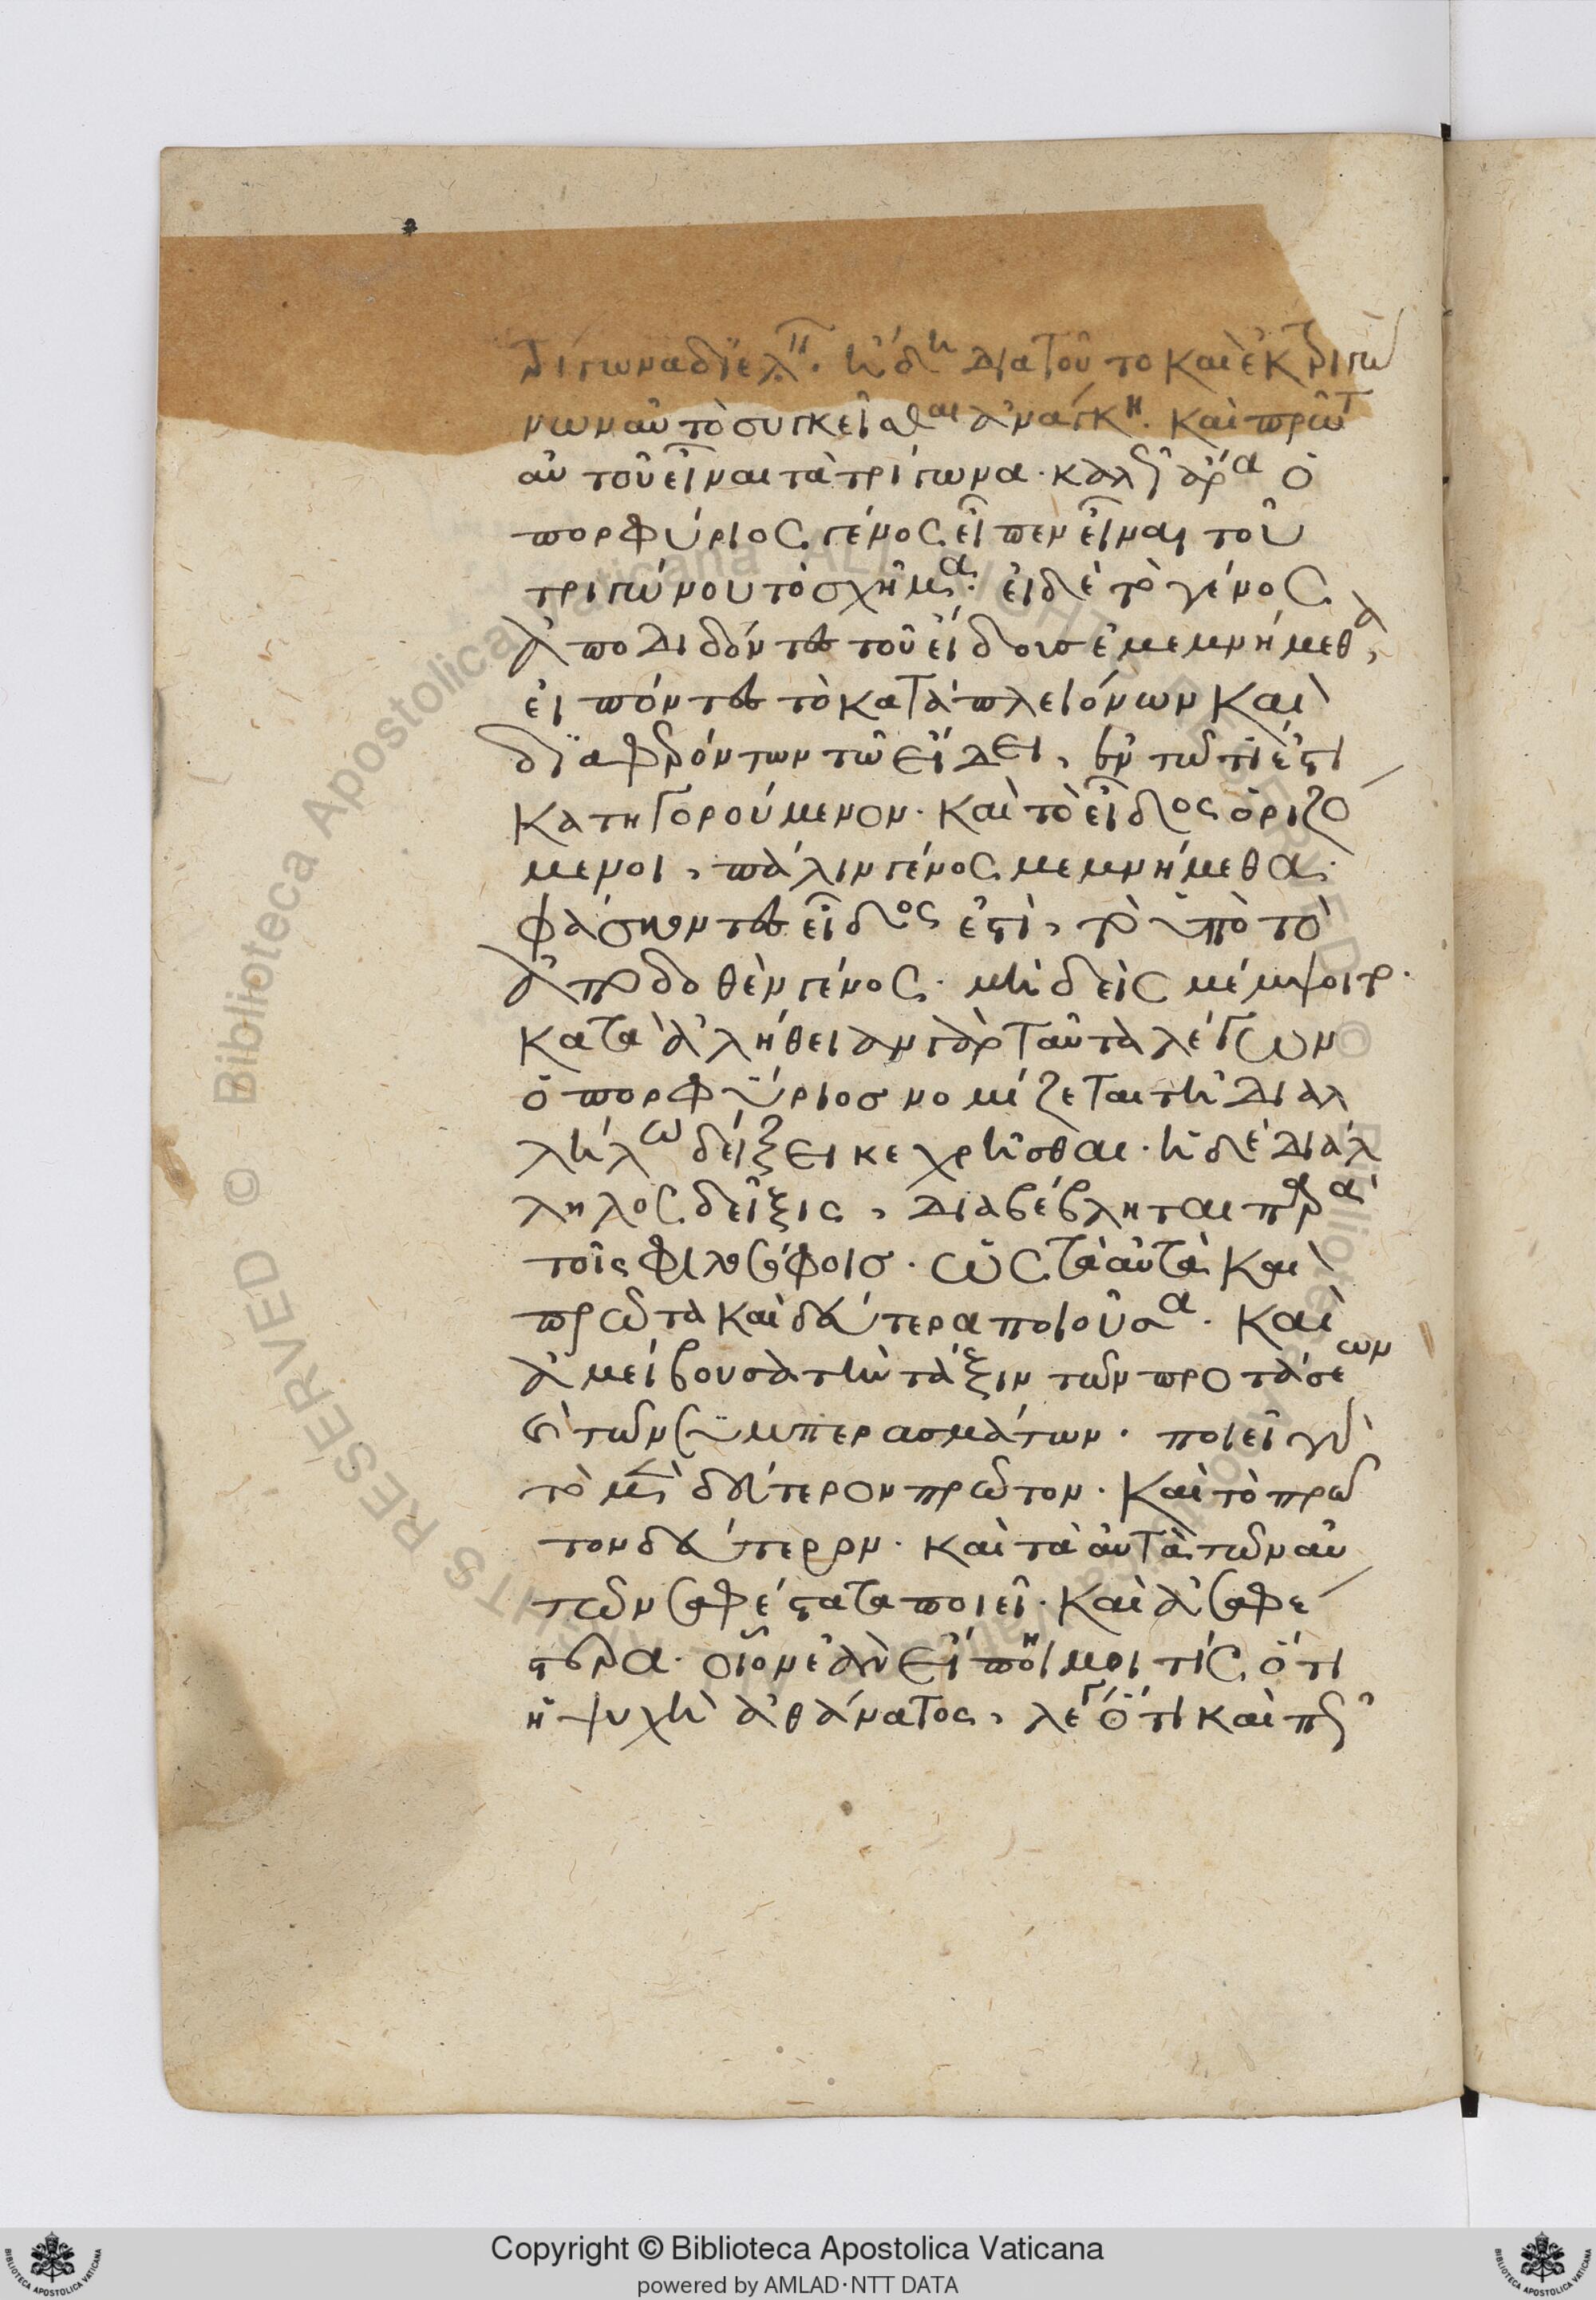 τρίγωνα διελ. ἤδη διατοῦτο καὶ ἐκ τριγώ
νων αὐτὸ συγκεῖσθαι ἀνάγκη. καὶ πρῶτ
αὐτοῦ εἶναι τὰ τρίγωνα. καλῶς ἄρα ὁ
πορφύριος γένος εἶπεν εἶναι τοῦ
τριγώνου τὸ σχῆμα. εἰ δὲ τὸ γένος
ἀποδιδόντες τοῦ εἴδους ἐμεμνήμεθα,
εἰπόντες τὸ κατὰ πλειόνων καὶ
διαφερόντων τῶ εἴδει, ἐν τῶ τί ἐστι
κατηγορούμενον. καὶ τὸ εἶδος ὁριζό
μενοι, πάλιν γένος μεμνήμεθα.
φάσκοντες εἶδος ἐστὶ, τὸ ὑπὸ τὸ
ἀποδοθὲν γένος. μηδεὶς μέμψοιτο.
κατὰ ἀλήθειαν γὰρ ταῦτα λέγων
ὁ πορφύριος νομίζεται τῆ διαλ
λήλω δείξει κεχρῆσθαι. ἡ δὲ διάλ
ληλος δεῖξις, διαβέβληται παρὰ
τοῖς φιλοσόφοις. ὡς τὰ αὐτὰ καὶ
πρῶτα καὶ δεύτερα ποιοῦσα. καὶ
ἀμείβουσα τὴν τάξιν τῶν προτάσεων
καὶ τῶν συμπερασμάτων. ποιεῖ γὰρ
τὸ μὲν δεύτερον πρῶτον. καὶ τὸ πρῶ
τον δεύτερον. καὶ τὰ αὐτὰ τῶν αὐ
τῶν σαφέστατα ποιεῖ. καὶ ἀσαφέ
στερα. οἷον ἐὰν εἴποι μοι τίς ὅτι
ἡ ψυχὴ ἀθάνατος, λέγ ὅτι καὶ
Copyright © Biblioteca Apostolica Vaticana
powered by AMLAD·NTT DATA